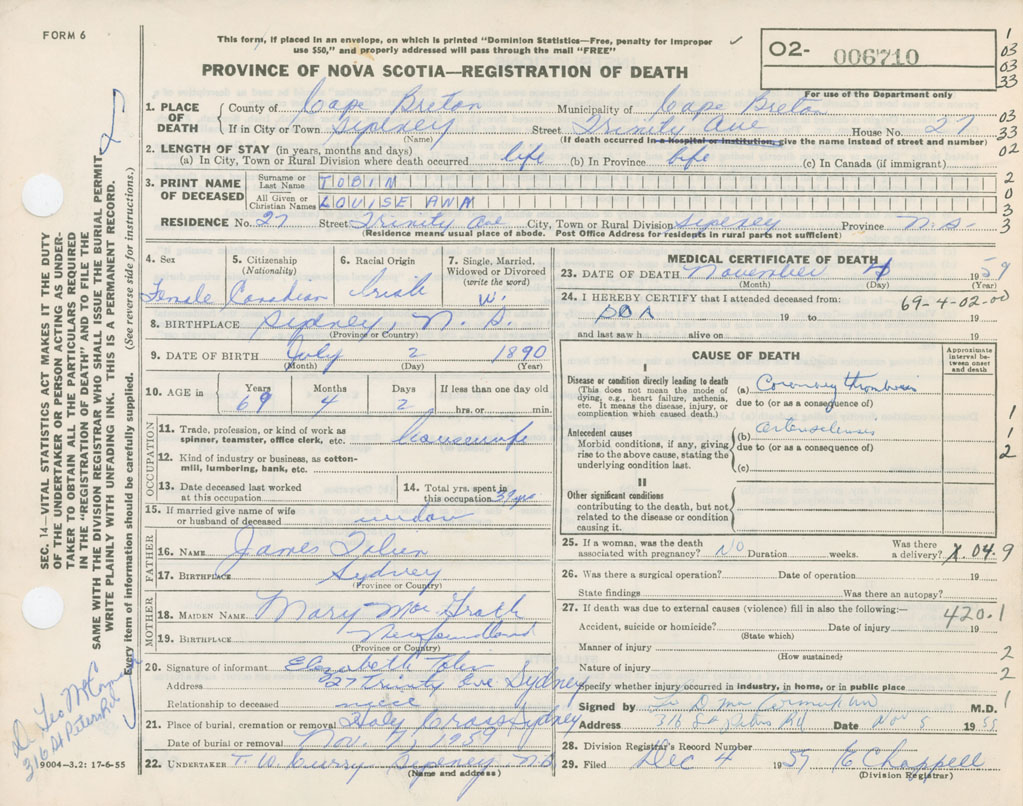 FORM 6
This form, if placed in an envelope, on which is printed "Dominion Statistics—Free, penalty for improper
use $50," and properly addressed will pass through the mail "FREE"
PROVINCE OF NOVA SCOTIA—REGISTRATION OF DEATH
O2- 006710
For use of the Department only
1
03
03
33
03
33
02
2
0
3
3
1. PLACE OF DEATH County of Cape Breton Municipality of Cape Breton
If in City or Town Sydney Street Trinity Ave House No. 27
(Name) (If death occurred in a hospital or institution, give the name instead of street and number)
2. LENGTH OF STAY (in years, months and days)
(a) In City, Town or Rural Division where death occurred life (b) In Province life (c) In Canada (if immigrant)
3. PRINT NAME OF DECEASED
Surname or Last Name TOBIN
All Given or Christian Names LOUISE ANN
RESIDENCE No. 27 Street Trinity Ave City, Town or Rural Division Sydney Province N.S.
(Residence means usual place of abode. Post Office Address for residents in rural parts not sufficient)
4. Sex Female
5. Citizenship (Nationality) Canadian
6. Racial Origin Irish
7. Single, Married, Widowed or Divorced (write the word) W.
8. BIRTHPLACE Sydney, N.S.
(Province or Country)
9. DATE OF BIRTH July 2 1890
(Month) (Day) (Year)
10. AGE in Years 69 Months 4 Days 2 If less than one day old hrs. or min.
OCCUPATION
11. Trade, profession, or kind of work as spinner, teamster, office clerk, etc. housewife
12. Kind of industry or business, as cotton-mill, lumbering, bank, etc.
13. Date deceased last worked at this occupation
14. Total yrs. spent in this occupation 39 yrs
15. If married give name of wife or husband of deceased widow
FATHER
16. NAME James Tobin
17. BIRTHPLACE Sydney
(Province or Country)
MOTHER
18. MAIDEN NAME Mary MacGrath
19. BIRTHPLACE Newfoundland
(Province or Country)
20. Signature of informant Elizabeth Tobin
Address 27 Trinity Ave Sydney
Relationship to deceased niece
21. Place of burial, cremation or removal Holy Cross Sydney
Date of burial or removal Nov. 7, 1959
22. UNDERTAKER T. W. Curry Sydney N.S.
(Name and address)
MEDICAL CERTIFICATE OF DEATH
23. DATE OF DEATH November 4 1959
(Month) (Day) (Year)
24. I HEREBY CERTIFY that I attended deceased from: 69-4-02-00
DOA 19 to 19
and last saw h alive on 19
CAUSE OF DEATH
Approximate interval between onset and death
I
Disease or condition directly leading to death
(This does not mean the mode of dying, e.g., heart failure, asthenia, etc. It means the disease, injury, or complication which caused death.)
(a) Coronary thrombosis
due to (or as a consequence of)
Antecedent causes
Morbid conditions, if any, giving rise to the above cause, stating the underlying condition last.
(b)
due to (or as a consequence of)
(c)
II
Other significant conditions
contributing to the death, but not related to the disease or condition causing it.
1
1
2
25. If a woman, was the death associated with pregnancy? NO Duration weeks. Was there a delivery? X.04.9
26. Was there a surgical operation? Date of operation 19
State findings Was there an autopsy?
27. If death was due to external causes (violence) fill in also the following:— 420.1
Accident, suicide or homicide? Date of injury 19
(State which)
Manner of injury 2
(How sustained)
Nature of injury 2
Specify whether injury occurred in industry, in home, or in public place
Signed by M.D. 1
Address 316 Date Nov 5 1955
28. Division Registrar's Record Number
29. Filed Dec 4 1959 Chappell
(Division Registrar)
SEC. 14—VITAL STATISTICS ACT MAKES IT THE DUTY
OF THE UNDERTAKER OR PERSON ACTING AS UNDER-
TAKER TO OBTAIN ALL THE PARTICULARS REQUIRED
IN THE "REGISTRATION OF DEATH" AND TO FILE THE
SAME WITH THE DIVISION REGISTRAR WHO SHALL ISSUE THE BURIAL PERMIT.
WRITE PLAINLY WITH UNFADING INK. THIS IS A PERMANENT RECORD.
Every item of information should be carefully supplied. (See reverse side for instructions.)
316 St Peters Rd
9004-3.2: 17-6-55